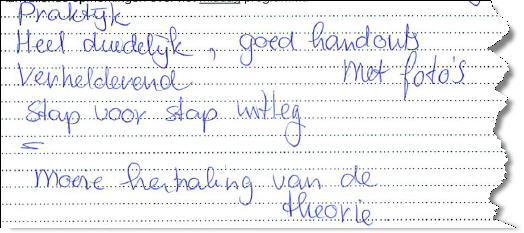 Praktijk
Heel duidelijk, goed handouts
Verhelderend met foto's
Stap voor stap uitleg
=
Mooie herhaling van de
theorie